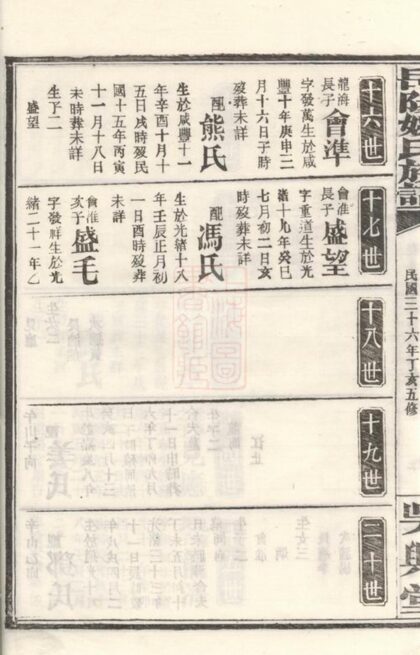 民國三十六年丁亥五修
十六世
龍海
長子
會準
字發萬生於咸
豐十年庚申三
月十六日子時
歿葬未詳
配
熊氏
生於咸豐十一
年辛酉十月十
五日戌時歿民
國十五年丙寅
十一月十八日
未時葬未詳
生子二
盛望
十七世
會准
長子
盛望
字重道生於光
緒十九年癸巳
七月初二日亥
時歿葬未詳
配
馮氏
生於光緒十八
年壬辰正月初
一日酉時歿葬
未詳
會准
次子
盛毛
字發祥生於光
緒二十一年乙
十八世
十九世
二十世